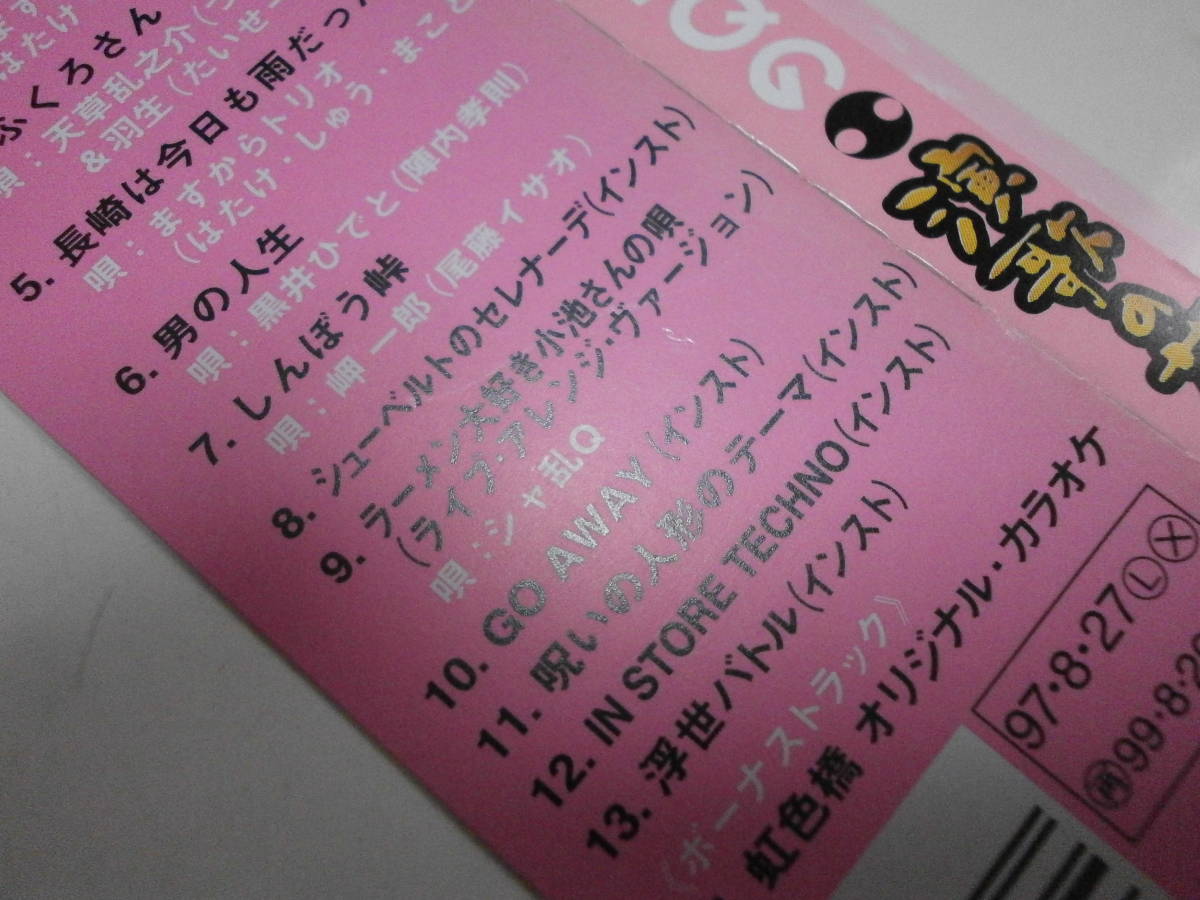 はたけ
ふくろさん
唄：天草乱之介
＆羽生（たいせー
5. 長崎は今日も雨だっ
唄：ますからトリオ
（はたけ・しゅう・まこと
6. 男の人生
唄：黒井ひでと（陣内孝則）
7. しんぼう峠
唄：岬一郎（尾藤イサオ）
8. シューベルトのセレナーデ（インスト）
9. ラーメン大好き小池さんの唄
（ライブ・アレンジ・ヴァージョン）
唄：シャ乱Q
10. GO AWAY（インスト）
11. 呪いの人形のテーマ（インスト）
12. IN STORE TECHNO（インスト）
13. 浮世バトル（インスト）
《ボーナストラック》
虹色橋 オリジナル・カラオケ
QG
演歌の
97・8・27 Ⓛ Ⓧ
再 99・8・2